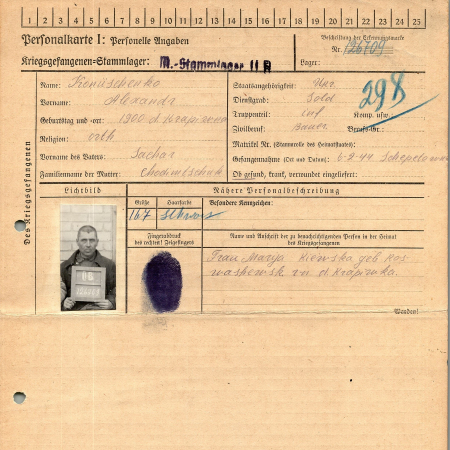 1 2 3 4 5 6 7 8 9 10 11 12 13 14 15 16 17 18 19 20 21 22 23 24 25
Personalkarte I: Personelle Angaben
Kriegsgefangenen=Stammlager: M.-Stammlager II B
Beschriftung der Erkennungsmarke
Nr. 126709
Lager:
Des Kriegsgefangenen
Name:
Vorname: Alexandr
Geburtstag und -ort: 1900 d.
Religion: orth
Vorname des Vaters: Sachar
Familienname der Mutter:
Staatsangehörigkeit: Ukr.
Dienstgrad: Sold
Truppenteil: inf Komp. usw.
Zivilberuf: Bauer Berufs-Gr.:
Matrikel Nr. (Stammrolle des Heimatstaates):
Gefangennahme (Ort und Datum):
Ob gesund, krank, verwundet eingeliefert:
298
Lichtbild
Nähere Personalbeschreibung
Größe Haarfarbe Besondere Kennzeichen:
167 Schwarz
Fingerabdruck
des rechten! Zeigefingers
Name und Anschrift der zu benachrichtigenden Person in der Heimat
des Kriegsgefangenen
Frau Marja
Wenden!